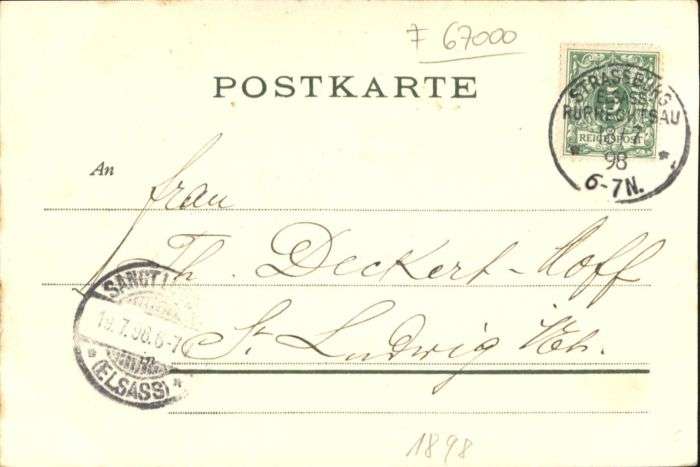 F 67000
POSTKARTE
5
REICHSPOST
STRASSBURG
ELSASS
RUPRECHTSAU
18.7
98
6-7N.
An
Frau
Th. Deckert-Hoff
St. Ludwig i/Els.
SANCT L
19.7.98.6-7
(ELSASS)
1898